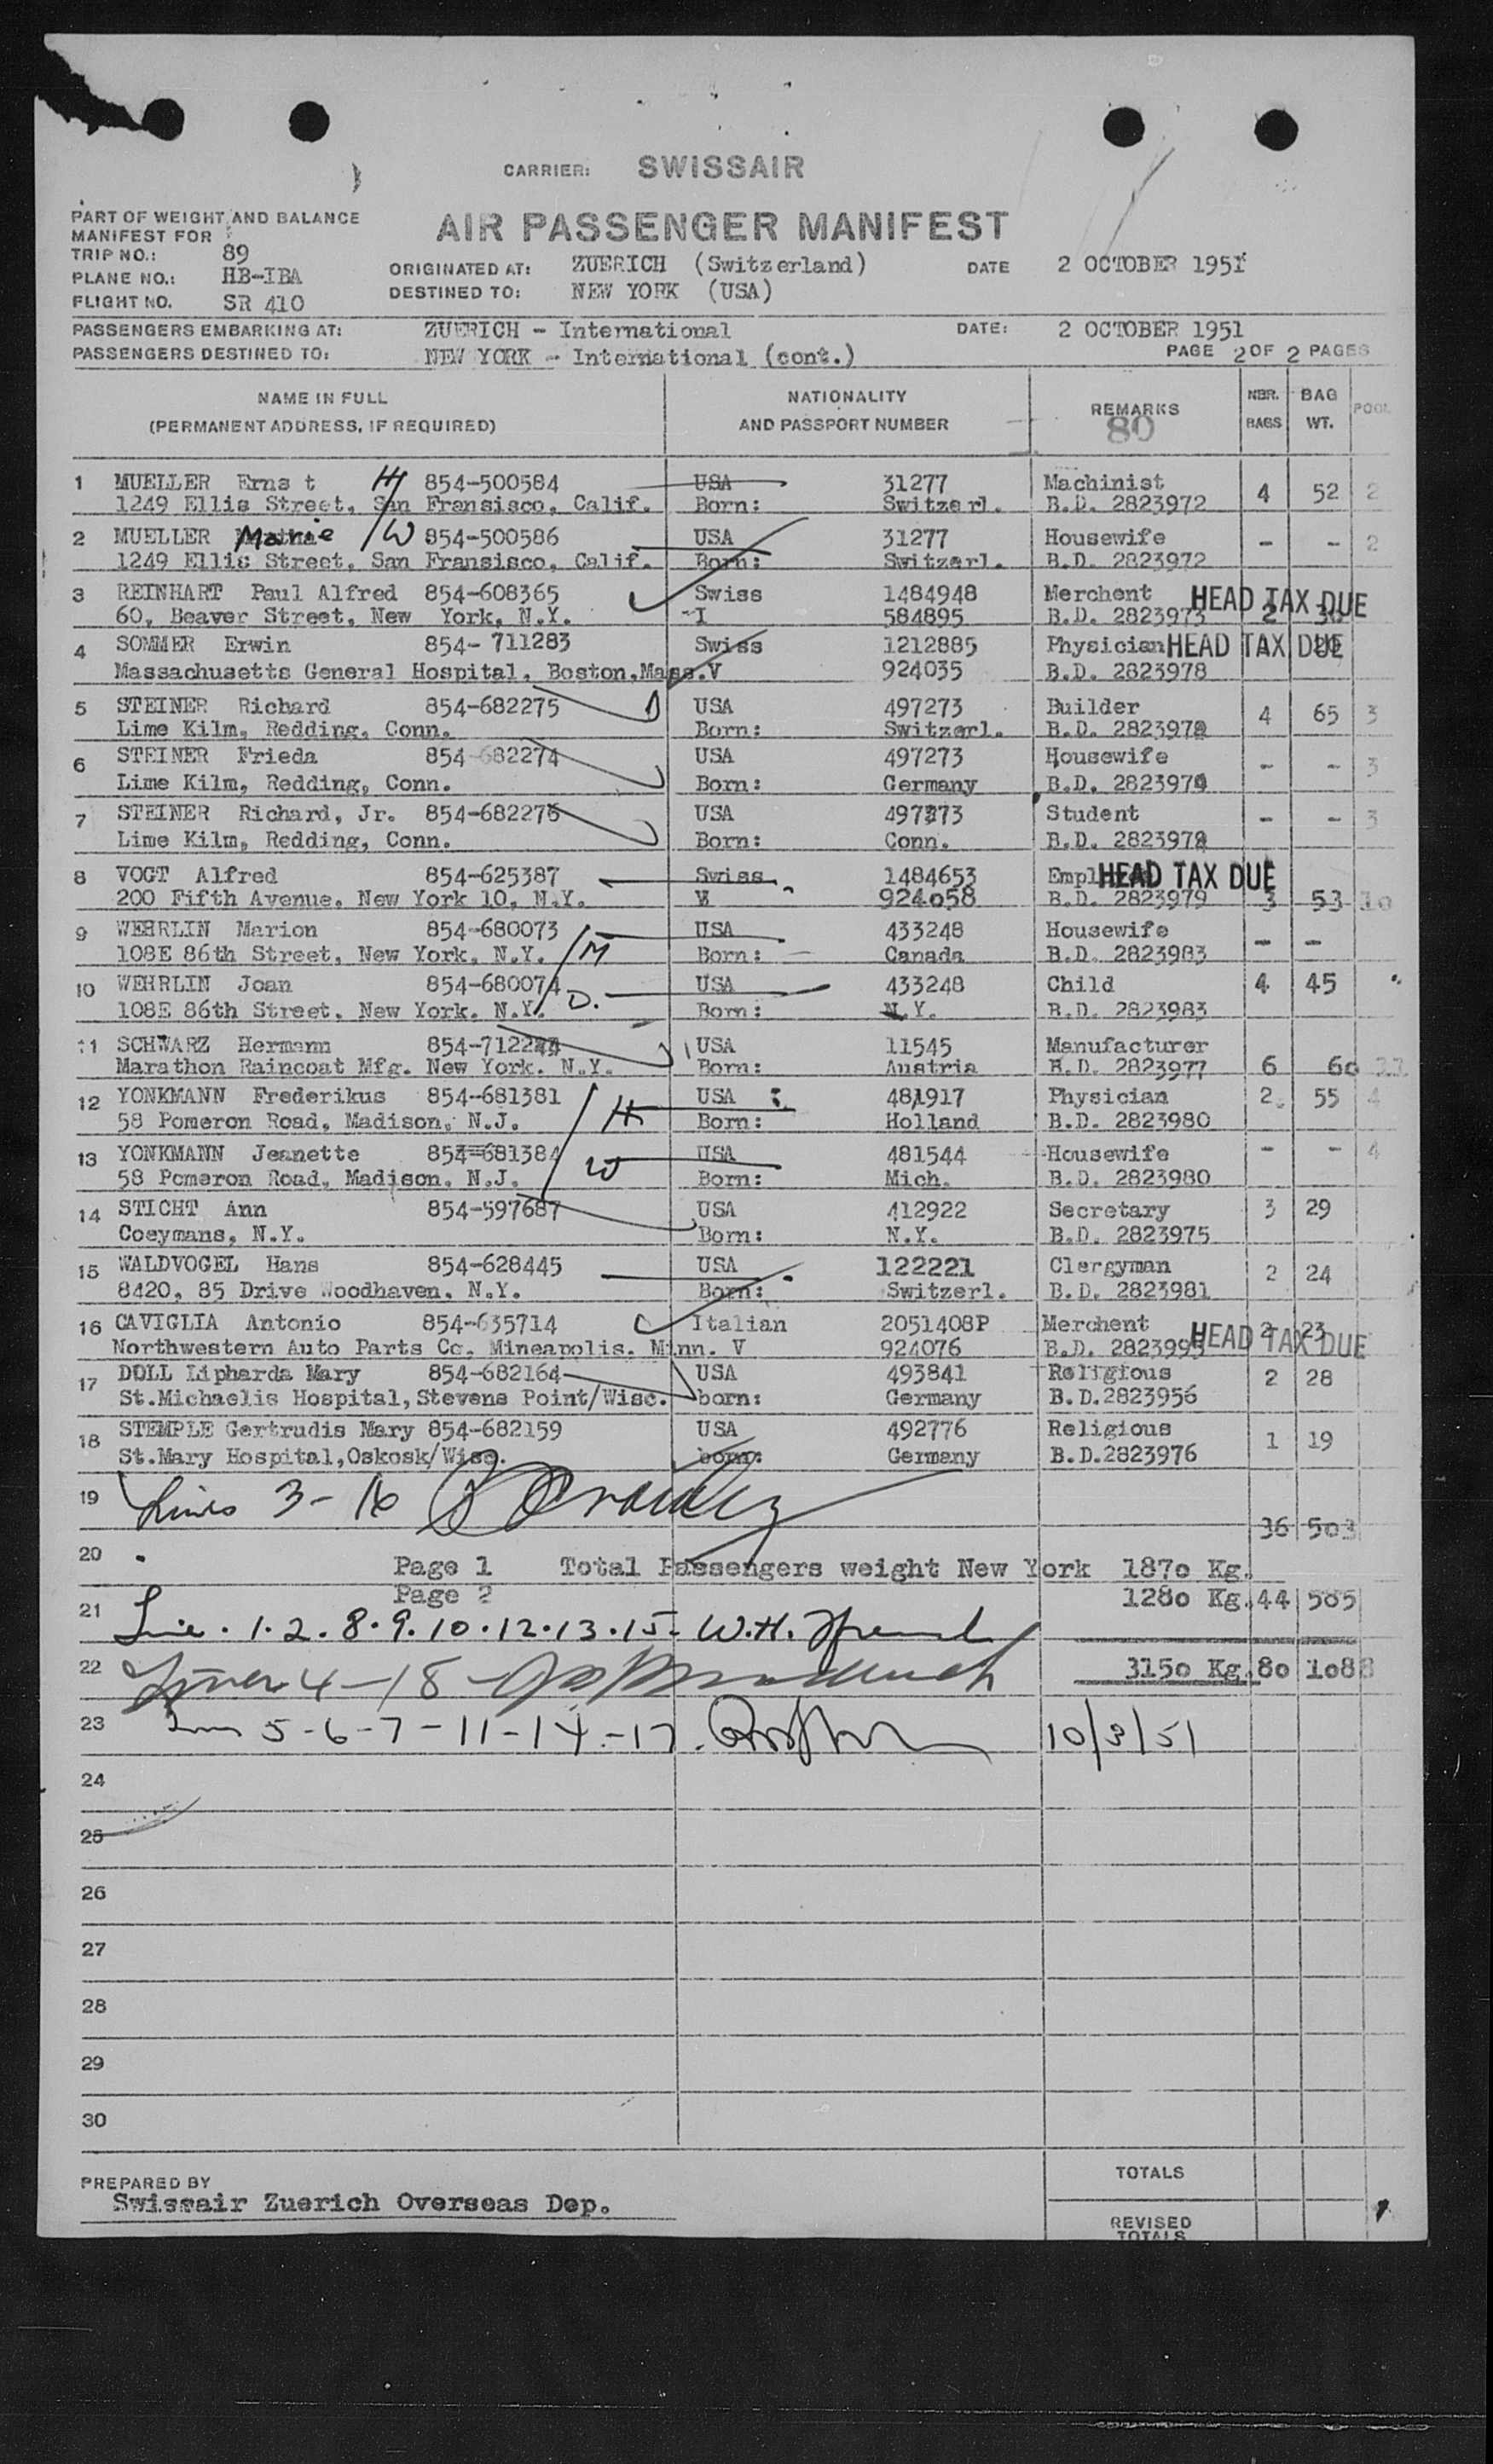 CARRIER: SWISSAIR
PART OF WEIGHT AND BALANCE
MANIFEST FOR
AIR PASSENGER MANIFEST
TRIP NO.: 89
PLANE NO.: HB-IBA
FLIGHT NO. SR 410
ORIGINATED AT: ZUERICH (Switzerland) DATE 2 OCTOBER 1951
DESTINED TO: NEW YORK (USA)
PASSENGERS EMBARKING AT: ZUERICH - International DATE: 2 OCTOBER 1951
PASSENGERS DESTINED TO: NEW YORK - International (cont.) PAGE 2 OF 2 PAGES
NAME IN FULL NATIONALITY REMARKS NBR. BAG POOL
(PERMANENT ADDRESS, IF REQUIRED) AND PASSPORT NUMBER 80 BAGS WT.
1 MUELLER Erns t H 854-500584 USA 31277 Machinist
1249 Ellis Street, San Fransisco, Calif. Born: Switzerl. B.D. 2823972 4 52 2
2 MUELLER Marie W 854-500586 USA 31277 Housewife
1249 Ellis Street, San Fransisco, Calif. Born: Switzerl. B.D. 2823972 - - 2
3 REINHART Paul Alfred 854-608365 Swiss 1484948 Merchent HEAD TAX DUE
60, Beaver Street, New York, N.Y. I 584895 B.D. 2823973 2
4 SOMMER Erwin 854- 711283 Swiss 1212885 Physician HEAD TAX DUE
Massachusetts General Hospital, Boston, Mass. V 924035 B.D. 2823978
5 STEINER Richard 854-682275 USA 497273 Builder
Lime Kilm, Redding, Conn. Born: Switzerl. B.D. 2823979 4 65 3
6 STEINER Frieda 854-682274 USA 497273 Housewife
Lime Kilm, Redding, Conn. Born: Germany B.D. 2823979 - - 3
7 STEINER Richard, Jr. 854-682276 USA 497273 Student
Lime Kilm, Redding, Conn. Born: Conn. B.D. 2823979 - - 3
8 VOGT Alfred 854-625387 Swiss 1484653 HEAD TAX DUE
200 Fifth Avenue, New York 10, N.Y. V 924058 B.D. 2823979 3 53 10
9 WEHRLIN Marion 854-680073 USA 433248 Housewife
108E 86th Street, New York, N.Y. M Born: Canada B.D. 2823983 - -
10 WEHRLIN Joan 854-680074 USA 433248 Child 4 45
108E 86th Street, New York, N.Y. D. Born: N.Y. B.D. 2823983
11 SCHWARZ Hermann 854-712244 USA 11545 Manufacturer
Marathon Raincoat Mfg. New York. N.Y. Born: Austria B.D. 2823977 6 60
12 YONKMANN Frederikus 854-681381 H USA 481917 Physician 2 55 4
58 Pomeron Road, Madison, N.J. Born: Holland B.D. 2823980
13 YONKMANN Jeanette 854-681384 W USA 481544 Housewife - - 4
58 Pomeron Road, Madison, N.J. Born: Mich. B.D. 2823980
14 STICHT Ann 854-597687 USA 412922 Secretary 3 29
Coeymans, N.Y. Born: N.Y. B.D. 2823975
15 WALDVOGEL Hans 854-628445 USA 122221 Clergyman 2 24
8420, 85 Drive Woodhaven, N.Y. Born: Switzerl. B.D. 2823981
16 CAVIGLIA Antonio 854-635714 Italian 2051408P Merchent 2 23
Northwestern Auto Parts Co. Mineapolis. Minn. V 924076 B.D. 2823995 HEAD TAX DUE
17 DOLL Lipharda Mary 854-682164 USA 493841 Religious 2 28
St.Michaelis Hospital, Stevens Point/Wisc. born: Germany B.D.2823956
18 STEMPLE Gertrudis Mary 854-682159 USA 492776 Religious 1 19
St.Mary Hospital, Oskosk/Wisc. born: Germany B.D.2823976
19 Lines 3-16
36 503
20 Page 1 Total Passengers weight New York 1870 Kg.
Page 2 1280 Kg. 44 585
21 Line. 1.2.8.9.10.12.13.15- W.H.
22 Lines 4-18 3150 Kg. 80 1088
23 5-6-7-11-14-17. 10/3/51
24
25
26
27
28
29
30
PREPARED BY
Swissair Zuerich Overseas Dep.
TOTALS
REVISED
TOTALS